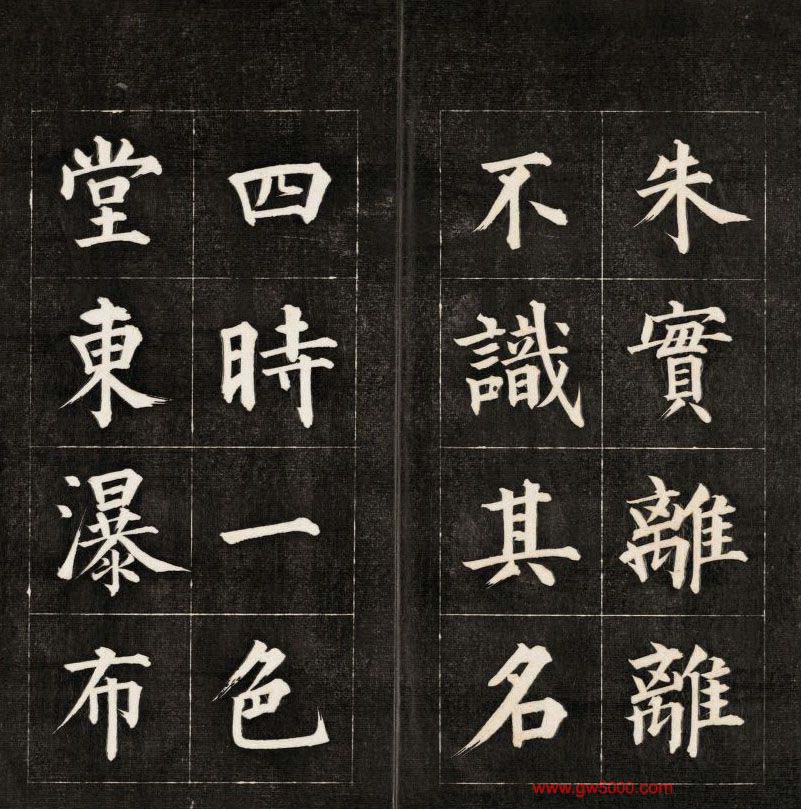 朱實離離
不識其名
四時一色
堂東瀑布
www.gw5000.com